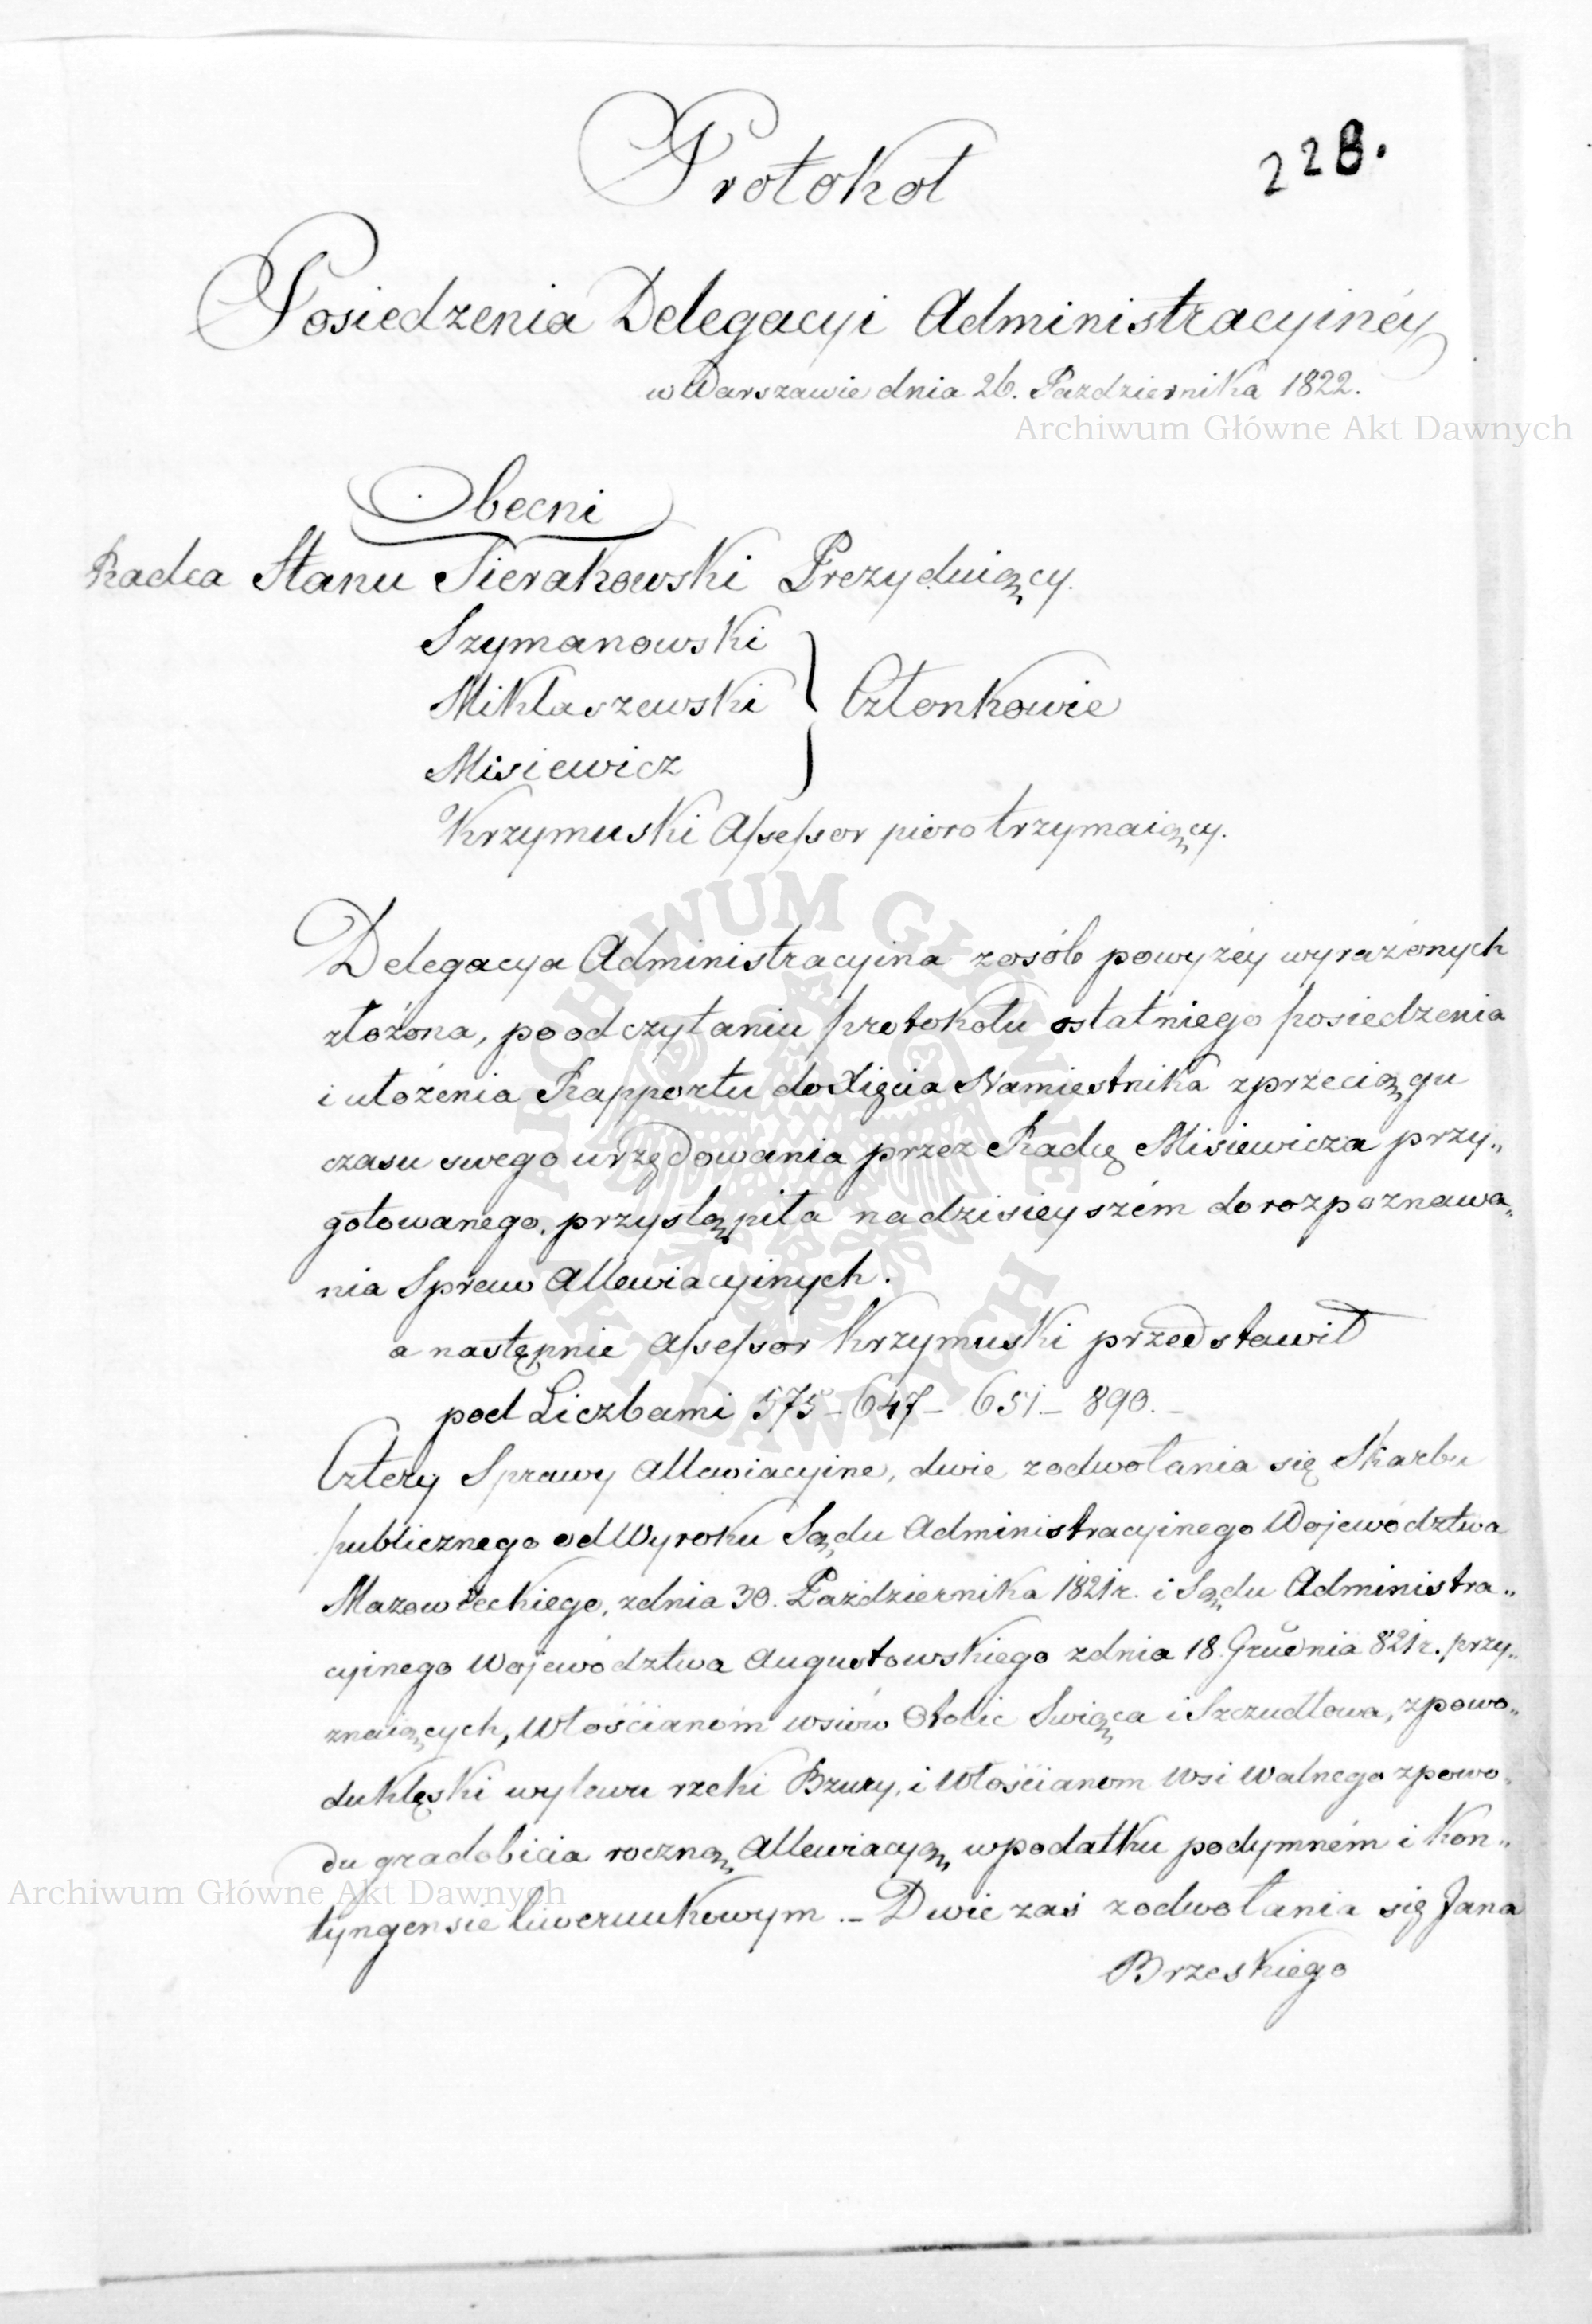 228.
Protokoł
Posiedzenia Delegacyi Administracyinéy
w Warszawie dnia 26. Pazdziernika 1822.
Archiwum Główne Akt Dawnych
Obecni
Radca Stanu Sierakowski Prezyduiący.
Szymanowski
Mikłaszewski } Członkowie
Misiewicz
Krzymuski Assessor pioro trzymaiący.
Delegacya Administracyina z osób powyżéy wyrażonych
złożona, po odczytaniu protokołu ostatniego posiedzenia
i ułożenia Rapportu do Xięcia Namiestnika z przeciągu
czasu swego urzędowania przez Radcę Misiewicza przy„
gotowanego, przystąpiła na dzisieyszém do rozpoznawa„
nia Spraw Allewiacyinych.
a następnie Assessor Krzymuski przedstawił
pod Liczbami 575 – 647 – 651 – 890. –
Cztery Sprawy Allewiacyine, dwie z odwołania się Skarbu
publicznego od Wyroku Sądu Administracyinego Województwa
Mazowieckiego, z dnia 30. Października 1821 r. i Sądu Administra„
cyinego Województwa Augustowskiego z dnia 18. Grudnia 821 r. przy„
znaiących, Włościanom wsiów Święca i Szczudłowa, z powo„
du klęski wylewu rzeki Bzury, i Włościanom Wsi Walnego z powo„
du gradobicia roczną Allewiacyą w podatku podymném i Kon„
tyngensie liwerunkowym. – Dwie zaś z odwołania się Jana
Brzeskiego
Archiwum Główne Akt Dawnych
ARCHIWUM GŁÓWNE AKT DAWNYCH